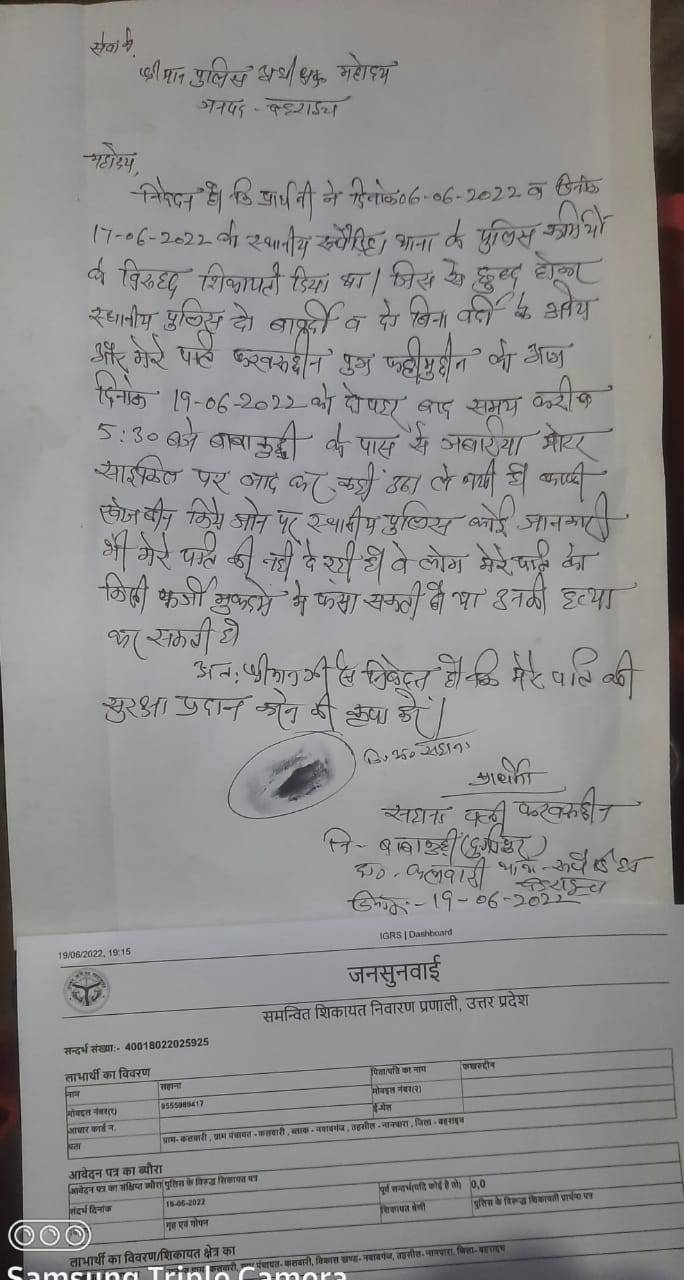 सेवा में,
श्रीमान पुलिस अधीक्षक महोदय
जनपद - बहराइच
महोदय,
निवेदन है कि प्रार्थिनी ने दिनांक 06-06-2022 व दिनांक
17-06-2022 को स्थानीय रूपैडिहा थाना के पुलिस कर्मियों
के विरुद्ध शिकायती दिया था। जिस से क्षुब्द होकर
स्थानीय पुलिस दो बावर्दी व दो बिना वर्दी के आये
और मेरे पति फखरूद्दीन पुत्र फहीमुद्दीन को आज
दिनांक 19-06-2022 को दोपहर बाद समय करीब
5:30 बजे बाबा कुट्टी के पास से जबरिया मोटर
साइकिल पर लाद कर कहीं उठा ले गयी है काफी
खोजबीन किये जाने पर स्थानीय पुलिस कोई जानकारी
भी मेरे पति की नहीं दे रही है वे लोग मेरे पति को
किसी फर्जी मुकदमें में फंसा सकती है या उनकी हत्या
कर सकती है
अत: श्रीमान जी से निवेदन है कि मेरे पति की
सुरक्षा प्रदान करने की कृपा करें।
नि. अं० सहाना
प्रार्थिनी
सहाना पत्नी फखरूद्दीन
नि - बाबाकुट्टी
दा०- कलवारी थाना - रूपैडिहा
बहराइच
दिनांक:- 19-06-2022
19/06/2022, 19:15
IGRS | Dashboard
जनसुनवाई
समन्वित शिकायत निवारण प्रणाली, उत्तर प्रदेश
सन्दर्भ संख्या:- 40018022025925
लाभार्थी का विवरण
नाम सहाना पिता/पति का नाम फखरुद्दीन
मोबइल नंबर(१) 9555989417 मोबइल नंबर(२)
आधार कार्ड न. ई-मेल
पता ग्राम- कलवारी , ग्राम पंचायत - कलवारी , ब्लाक - नवाबगंज , तहसील - नानपारा , जिला - बहराइच
आवेदन पत्र का ब्यौरा
आवेदन पत्र का संक्षिप्त ब्यौरा पुलिस के विरूद्ध शिकायत पत्र पूर्व सन्दर्भ(यदि कोई है तो) 0,0
संदर्भ दिनांक 19-06-2022 शिकायत श्रेणी पुलिस के विरूद्ध शिकायती प्रार्थना पत्र
गृह एवं गोपन
लाभार्थी का विवरण/शिकायत क्षेत्र का
ग्राम कलवारी, ग्राम पंचायत- कलवारी, विकास खण्ड- नवाबगंज, तहसील- नानपारा, जिला- बहराइच
Samsung Triple Camera